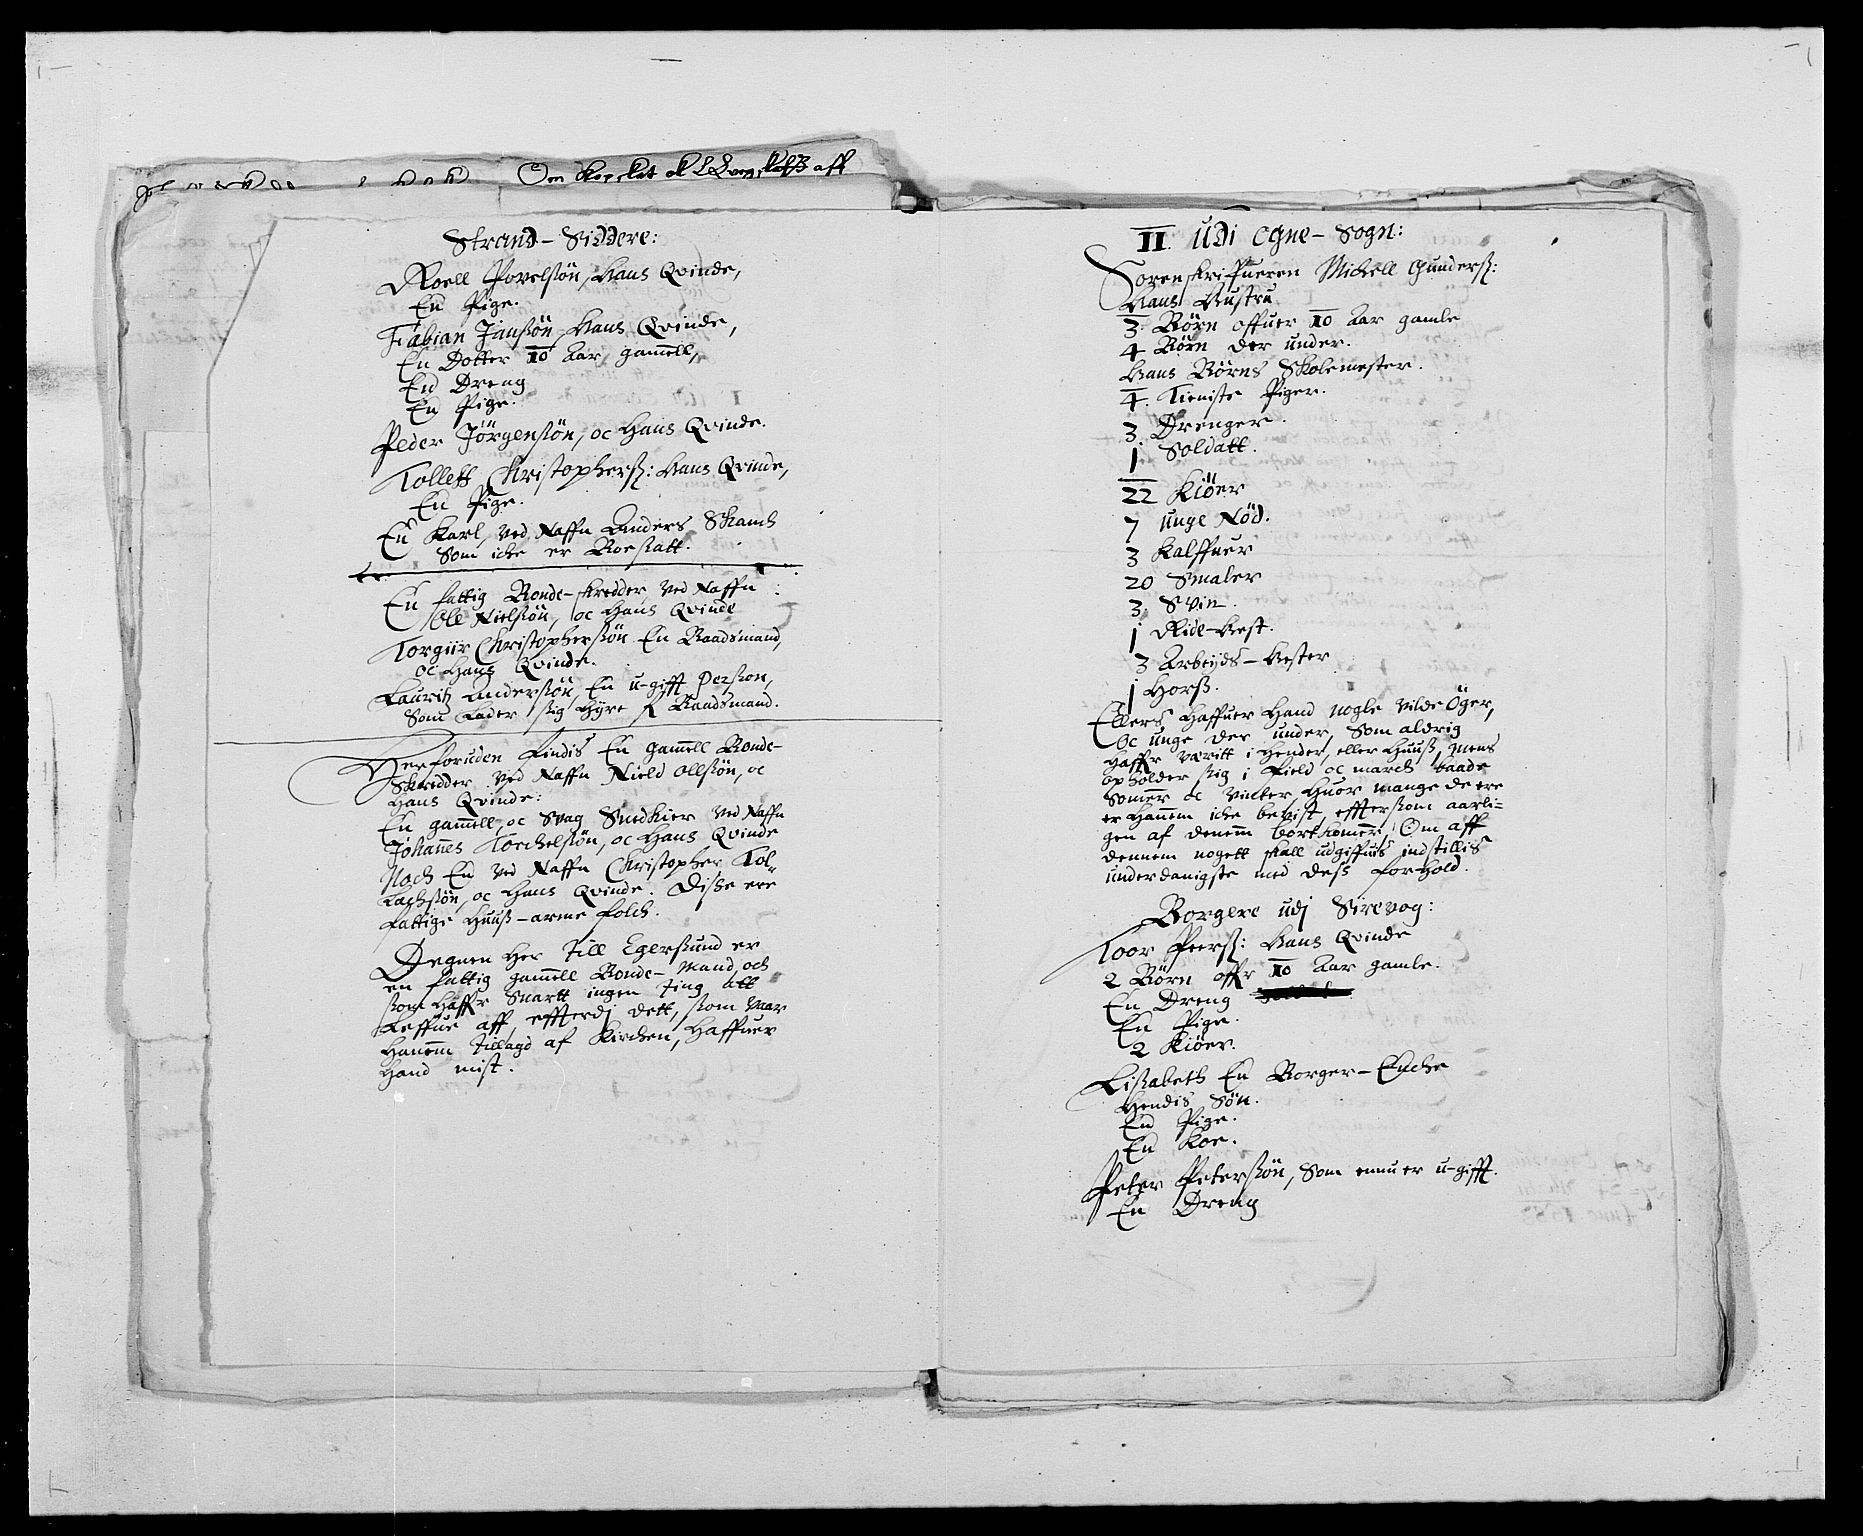 Om Kopskat ok Qvegskatt aff
Strand-Siddere:
Roell Povelssön, Hans Qvinde,
En Pige.
Fabian Janssön, Hans Qvinde,
En Dotter 10 Aar gamell,
En Dreng
En Pige.
Peder Jörgenssön, oc Hans Qvinde.
Tolleff Christophersß: Hans Qvinde,
En Pige.
En Karl, ved Naffn Anders Skanch
Som iche er Boesatt.
En fattig Bonde-skredder, ved Naffn
Olle Nielssön, oc Hans Qvinde
Torgiir Christopherssön En Baadsmand,
oc Hans Qvinde.
Lauritz Anderssön, En u-gifft Person,
Som Lader sig Hyre f Baadsmand.
Herforuden Findis En gamell Bonde-
Skredder ved Naffn Nield Ollssön, oc
Hans Qvinde:
En gamell, oc svag Snedkier ved Naffn
Johannes Torchelssön, oc Hans Qvinde
Noch En ved Naffn Christopher Tol-
lachssön, oc Hans Qvinde. Disse ere
fattige Huuß-arme folch.
Degnen Her Till Egerssund er
en fattig gamell Bonde-Mand, och
som Haffr snartt ingen Ting att
Leffue aff, effterdj dett, som vaar
Hanem Tillagd af Kirchen, Haffuer
Hand mist.
II. Udi Ogne-Sogn:
Sorenskrifueren Michell Gunderß:
Hans Hustru
3. Börn offuer 10 Aar gamle
4 Börn der under.
Hans Börns Skolemester.
4. Tieniste Piger.
3 Drenger.
1 Soldatt.
22 Kiöer
7 unge Nöd.
3 Kalffuer
20 Smaler
3 Svin.
1 Ride-Hest.
3 Arbeyds-Hester
1 Horß.
Ellers Haffuer Hand nogle vilde Öger,
Oc unge der under, som aldrig
Haffr væritt i Hender, eller Huuß, mens
opholder sig i Field oc march baade
Sommer oc vinter Huor mange de ere
er Hannem iche bevist, effterssom aarli-
gen af dennem bortkommer, Om aff
dennem nogett skall udgiffuis indstillis
underdanigste med dess forhold.
Borgere udj Sirevog:
Toor Peerß: Hans Qvinde
2 Börn offr 10 Aar gamle.
En Dreng
En Pige.
2 Kiöer.
Lisabeth En Borger-Enche
Hendis Sön.
En Pige.
En Koe.
Peter Peterssön, Som ennu er u-gifft.
En Dreng